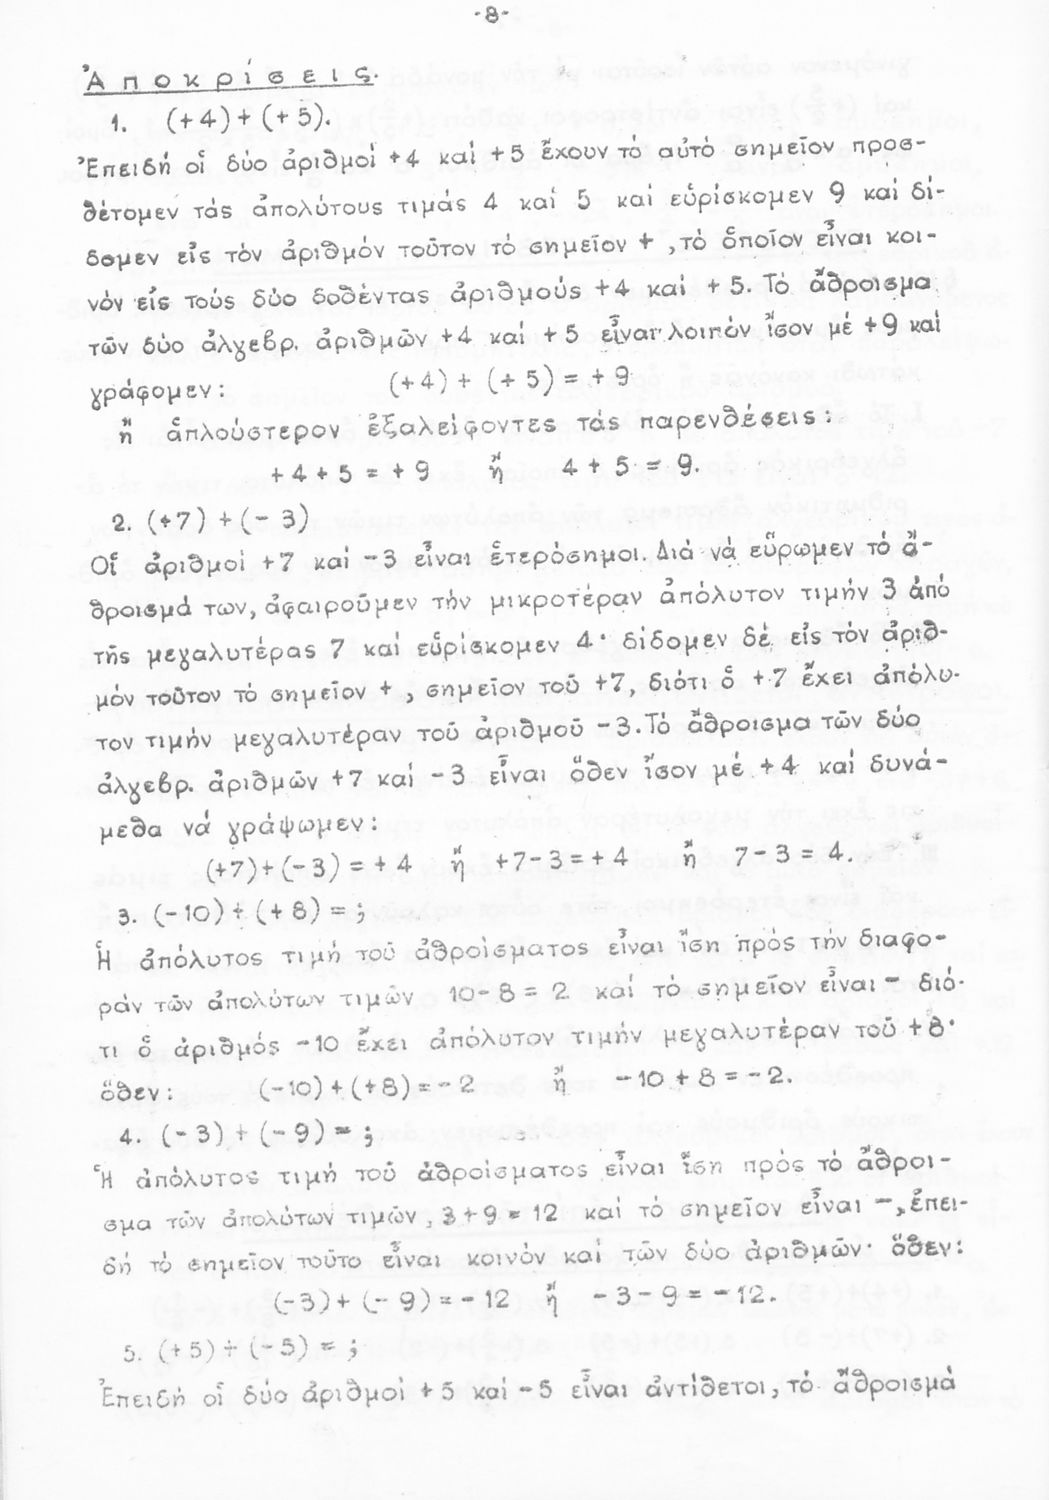 -8-
Ἀποκρίσεις.
1. (+4)+(+5).
Ἐπειδή οἱ δύο ἀριθμοί +4 καί +5 ἔχουν τό αὐτό σημεῖον προσ-
θέτομεν τάς ἀπολύτους τιμάς 4 καί 5 καί εὑρίσκομεν 9 καί δί-
δομεν εἰς τόν ἀριθμόν τοῦτον τό σημεῖον + , τό ὁποῖον εἶναι κοι-
νόν εἰς τούς δύο δοθέντας ἀριθμούς +4 καί +5. Τό ἄθροισμα
τῶν δύο ἀλγεβρ. ἀριθμῶν +4 καί +5 εἶναι λοιπόν ἴσον μέ +9 καί
γράφομεν: (+4) + (+5) = +9
ἤ ἁπλούστερον ἐξαλείφοντες τάς παρενθέσεις:
+4+5 = +9 ἤ 4+5 = 9.
2. (+7) + (-3)
Οἱ ἀριθμοί +7 καί -3 εἶναι ἑτερόσημοι. Διά νά εὕρωμεν τό ἄ-
θροισμά των, ἀφαιροῦμεν τήν μικροτέραν ἀπόλυτον τιμήν 3 ἀπό
τῆς μεγαλυτέρας 7 καί εὑρίσκομεν 4· δίδομεν δέ εἰς τόν ἀριθ-
μόν τοῦτον τό σημεῖον + , σημεῖον τοῦ +7, διότι ὁ +7 ἔχει ἀπόλυ-
τον τιμήν μεγαλυτέραν τοῦ ἀριθμοῦ -3. Τό ἄθροισμα τῶν δύο
ἀλγεβρ. ἀριθμῶν +7 καί -3 εἶναι ὅθεν ἴσον μέ +4 καί δυνά-
μεθα νά γράψωμεν:
(+7)+(-3) = +4 ἤ +7-3 = +4 ἤ 7-3 = 4.
3. (-10) + (+8) = ;
Ἡ ἀπόλυτος τιμή τοῦ ἀθροίσματος εἶναι ἴση πρός τήν διαφο-
ράν τῶν ἀπολύτων τιμῶν 10-8 = 2 καί τό σημεῖον εἶναι - διό-
τι ὁ ἀριθμός -10 ἔχει ἀπόλυτον τιμήν μεγαλυτέραν τοῦ +8·
ὅθεν: (-10)+(+8) = -2 ἤ -10+8 = -2.
4. (-3) + (-9) = ;
Ἡ ἀπόλυτος τιμή τοῦ ἀθροίσματος εἶναι ἴση πρός τό ἄθροι-
σμα τῶν ἀπολύτων τιμῶν, 3+9 = 12 καί τό σημεῖον εἶναι -, ἐπει-
δή τό σημεῖον τοῦτο εἶναι κοινόν καί τῶν δύο ἀριθμῶν· ὅθεν:
(-3)+ (-9) = -12 ἤ -3-9 = -12.
5. (+5) + (-5) = ;
Ἐπειδή οἱ δύο ἀριθμοί +5 καί -5 εἶναι ἀντίθετοι, τό ἄθροισμά